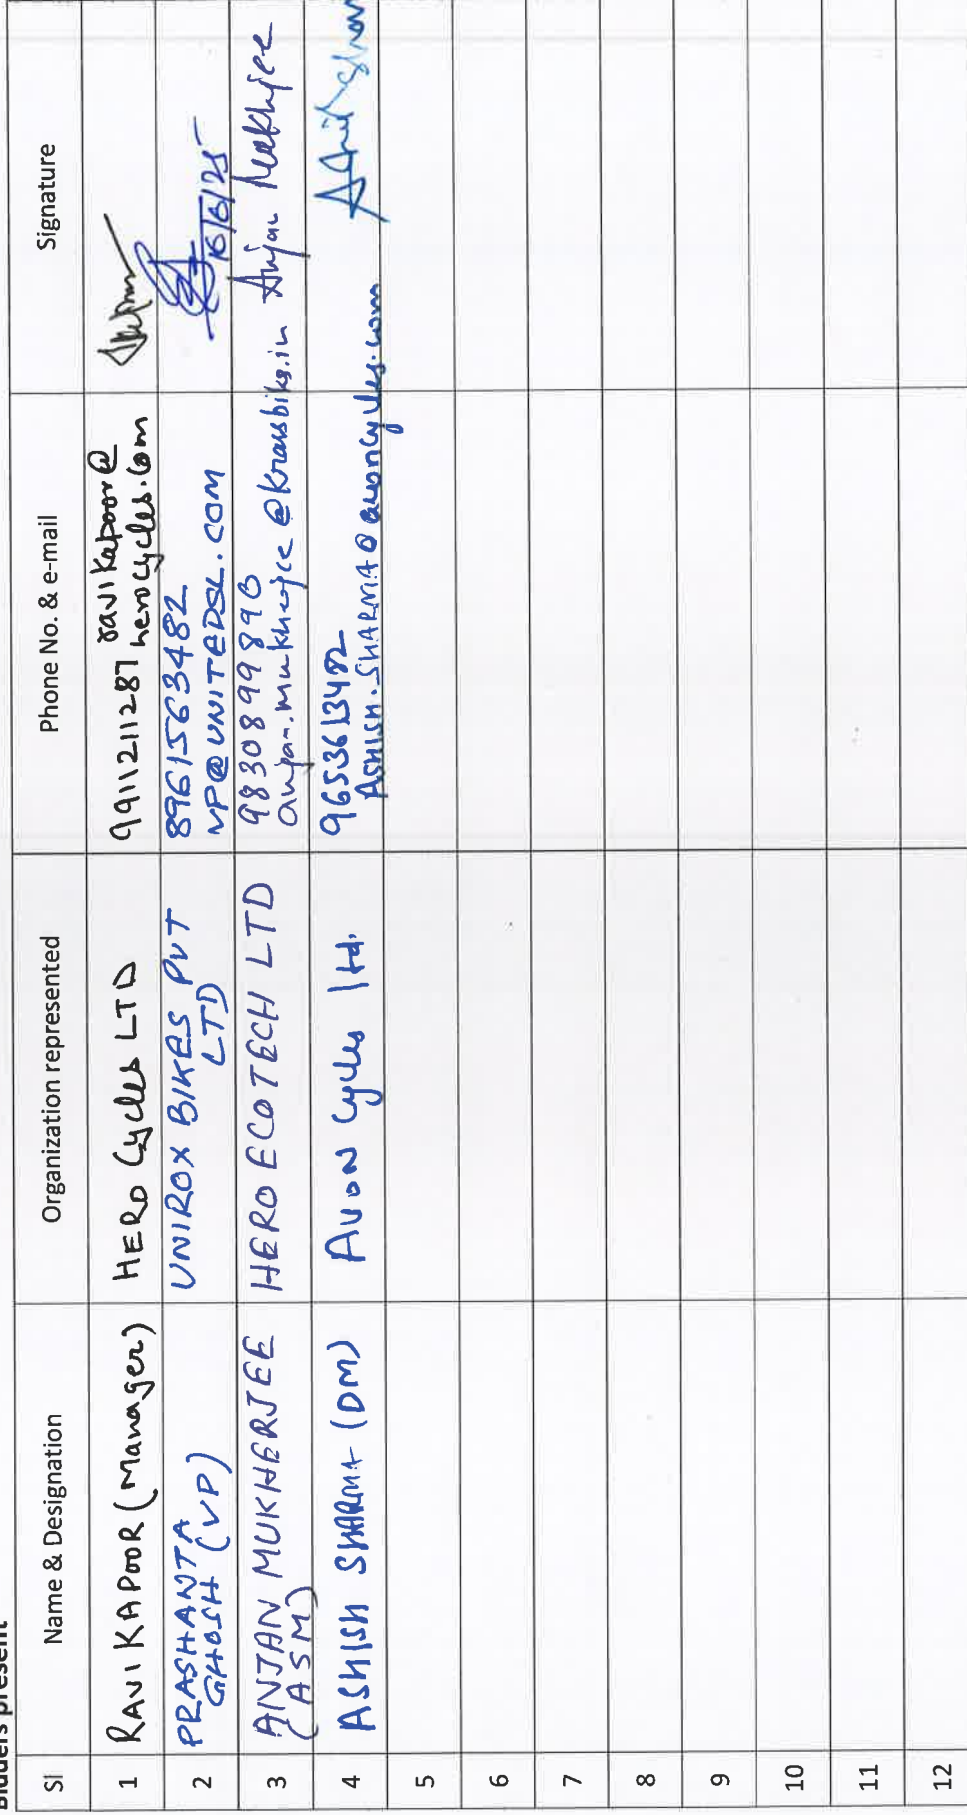 Bidders present
Sl
Name & Designation
Organization represented
Phone No. & e-mail
Signature
1
RAVI KAPOOR (Manager)
HERO Cycles LTD
9911211287 ravikapoor@
herocycles.com
2
PRASHANTA
GHOSH (VP)
UNIROX BIKES PVT
LTD
8961563482
VP@UNITEDSL.COM
16/6/25
3
ANJAN MUKHERJEE
(ASM)
HERO ECOTECH LTD
9830899890
anjan.mukherjee@krossbikes.in
4
ASHISH SHARMA (DM)
AVON Cycles ltd.
9653613482
ASHISH.SHARMA@avoncycles.com
5
6
7
8
9
10
11
12